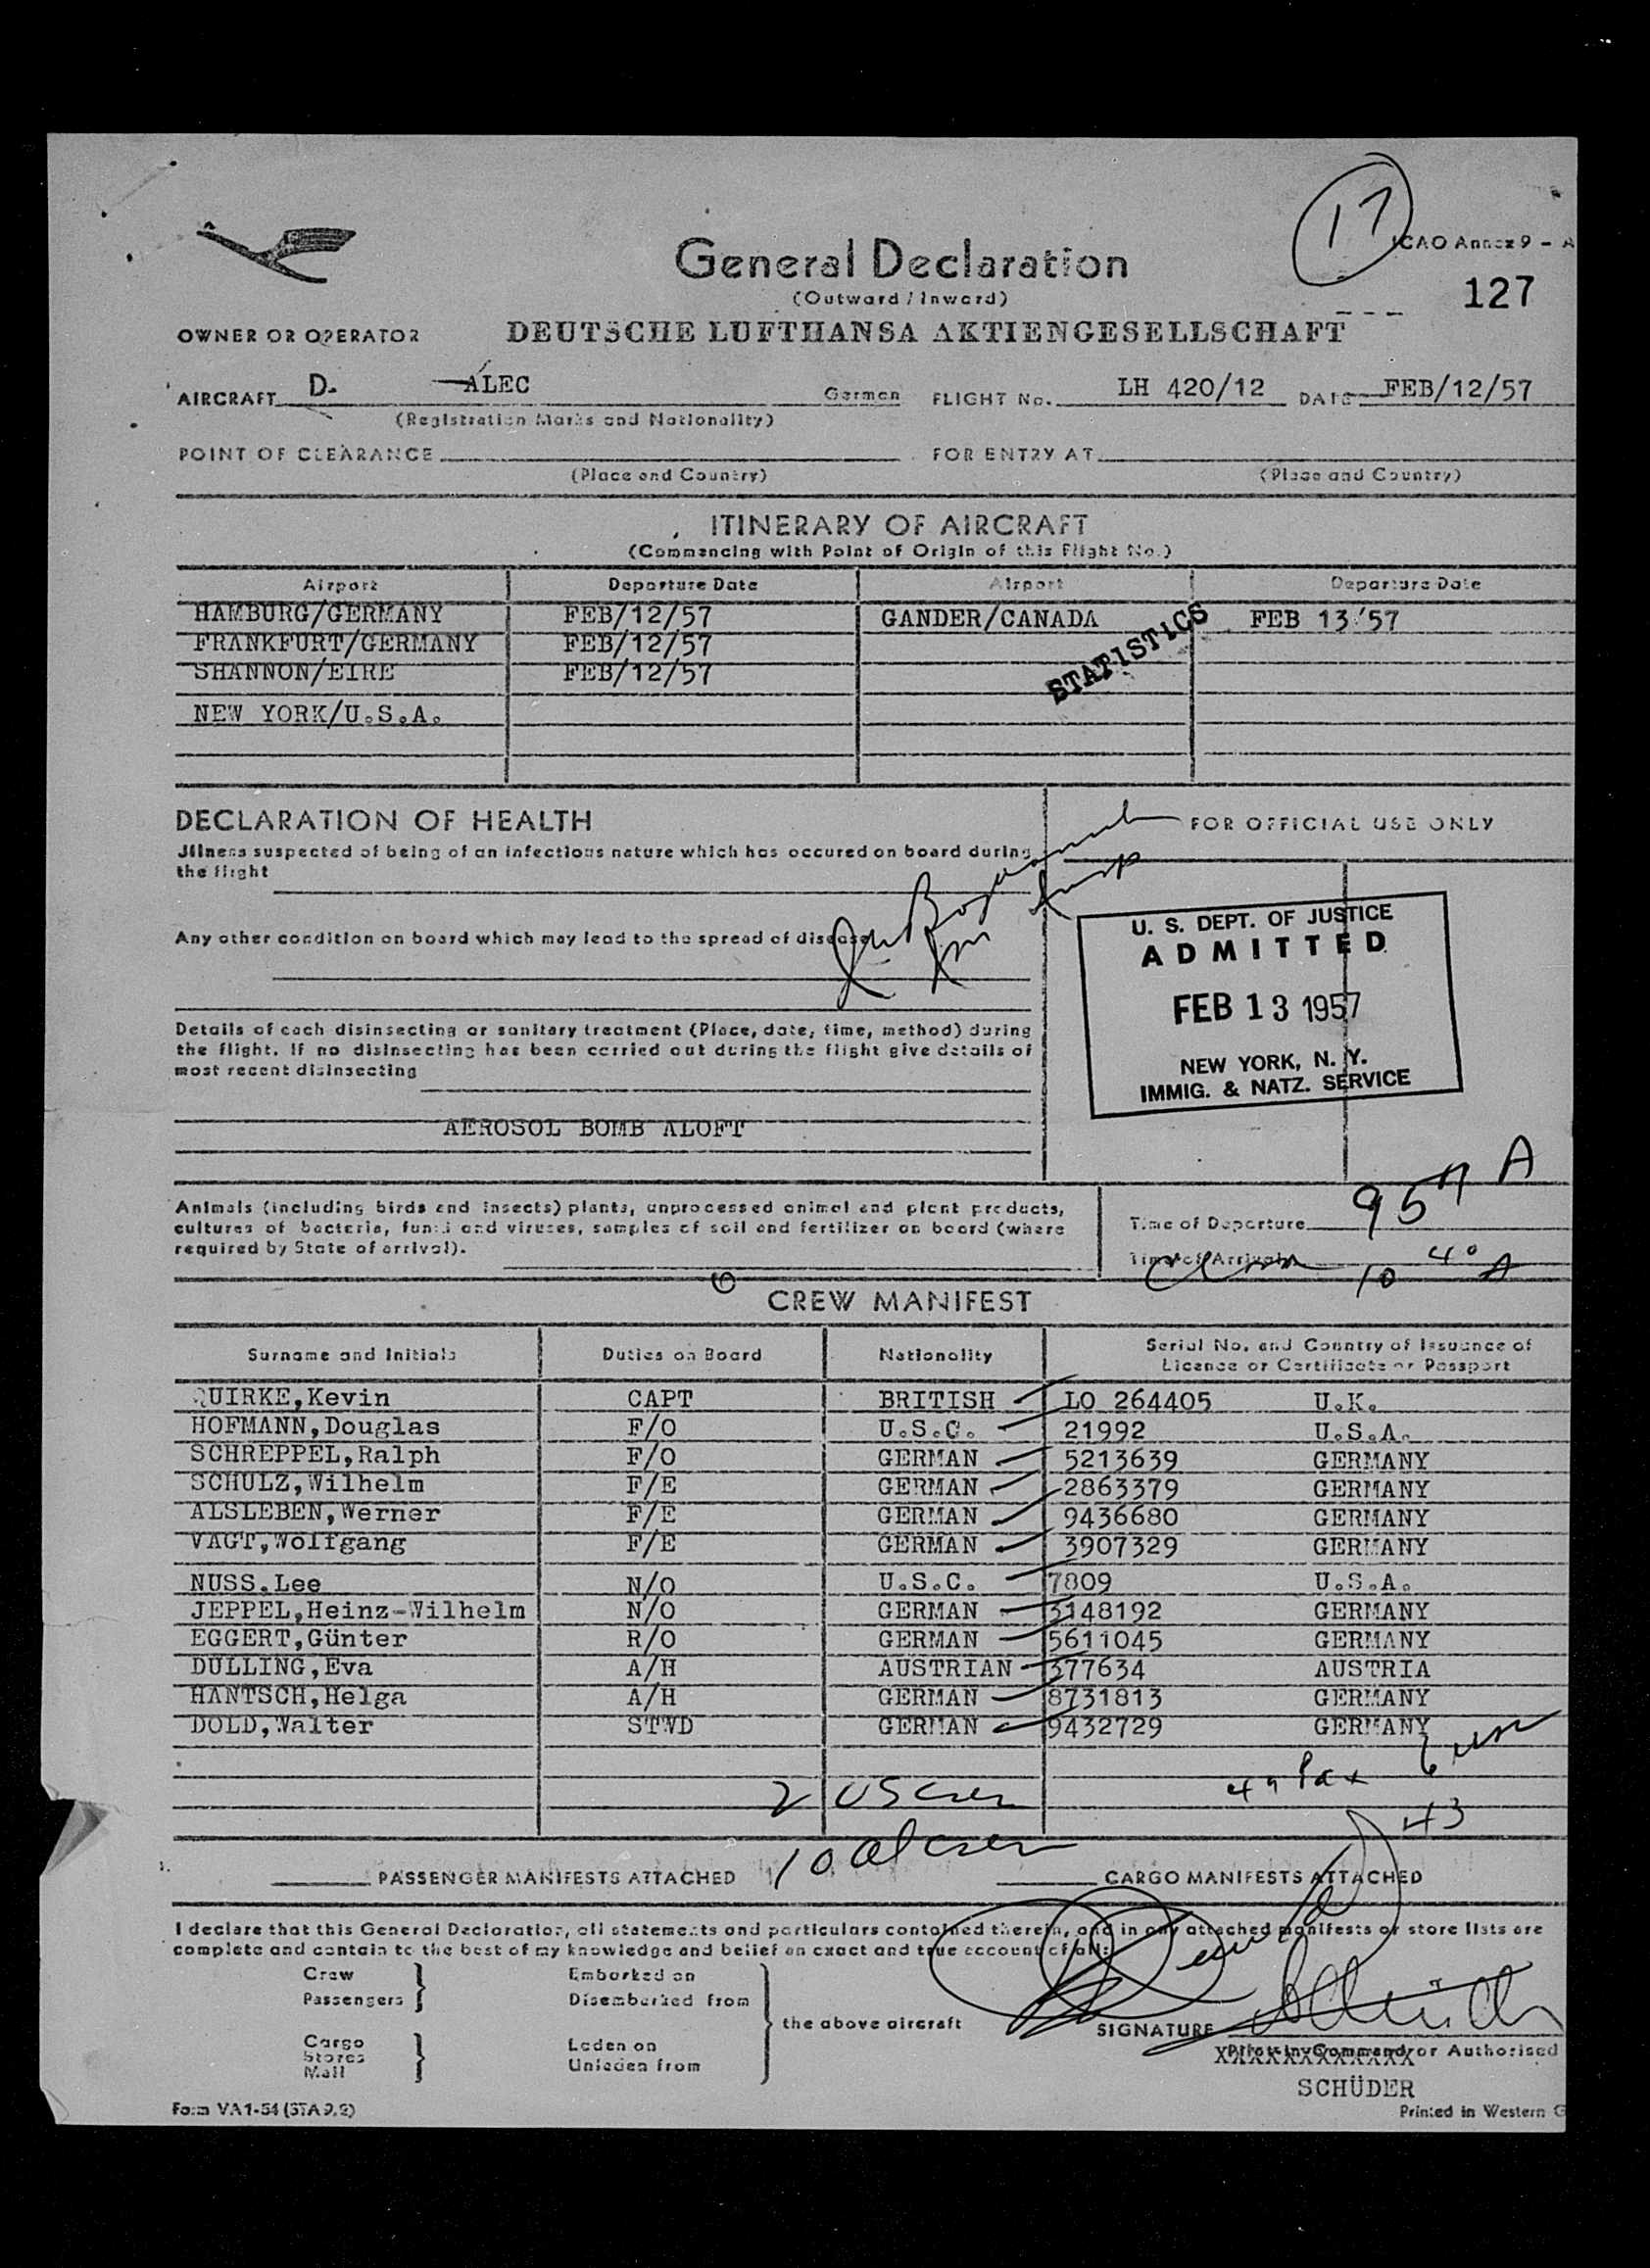 17
ICAO Annex 9 - A
General Declaration
127
(Outward / Inward)
OWNER OR OPERATOR DEUTSCHE LUFTHANSA AKTIENGESELLSCHAFT
AIRCRAFT D- ALEC German FLIGHT No. LH 420/12 DATE FEB/12/57
(Registration Marks and Nationality)
POINT OF CLEARANCE FOR ENTRY AT
(Place and Country) (Place and Country)
ITINERARY OF AIRCRAFT
(Commencing with Point of Origin of this Flight No.)
Airport Departure Date Airport Departure Date
HAMBURG/GERMANY FEB/12/57 GANDER/CANADA FEB 13'57
FRANKFURT/GERMANY FEB/12/57
SHANNON/EIRE FEB/12/57
STATISTICS
NEW YORK/U.S.A.
DECLARATION OF HEALTH
FOR OFFICIAL USE ONLY
Jllness suspected of being of an infectious nature which has occured on board during
the flight
Any other condition on board which may lead to the spread of disease
U. S. DEPT. OF JUSTICE
ADMITTED
FEB 13 1957
NEW YORK, N. Y.
IMMIG. & NATZ. SERVICE
Details of each disinsecting or sanitary treatment (Place, date, time, method) during
the flight. If no disinsecting has been carried out during the flight give details of
most recent disinsecting
AEROSOL BOMB ALOFT
Animals (including birds and insects) plants, unprocessed animal and plant products,
cultures of bacteria, fungi and viruses, samples of soil and fertilizer on board (where
required by State of arrival).
Time of Departure 957 A
Time of Arrival 10 40 A
CREW MANIFEST
Surname and Initials Duties on Board Nationality Serial No. and Country of Issuance of
Licence or Certificate or Passport
QUIRKE,Kevin CAPT BRITISH LO 264405 U.K.
HOFMANN,Douglas F/O U.S.C. 21992 U.S.A.
SCHREPPEL,Ralph F/O GERMAN 5213639 GERMANY
SCHULZ,Wilhelm F/E GERMAN 2863379 GERMANY
ALSLEBEN,Werner F/E GERMAN 9436680 GERMANY
VAGT,Wolfgang F/E GERMAN 3907329 GERMANY
NUSS.Lee N/O U.S.C. 7809 U.S.A.
JEPPEL,Heinz-Wilhelm N/O GERMAN 3148192 GERMANY
EGGERT,Günter R/O GERMAN 5611045 GERMANY
DULLING,Eva A/H AUSTRIAN 377634 AUSTRIA
HANTSCH,Helga A/H GERMAN 8731813 GERMANY
DOLD,Walter STWD GERMAN 9432729 GERMANY
2 US crew
43
10 al crew
PASSENGER MANIFESTS ATTACHED CARGO MANIFESTS ATTACHED
I declare that this General Declaration, all statements and particulars contained therein, and in any attached manifests or store lists are
complete and contain to the best of my knowledge and belief an exact and true account of all:
Crew Embarked on
Passengers Disembarked from
the above aircraft
Cargo Laden on
Stores Unladen from
Mail
SIGNATURE
Pilot-in-Command or Authorised
SCHÜDER
Form VA1-54 (STA 9.2)
Printed in Western G